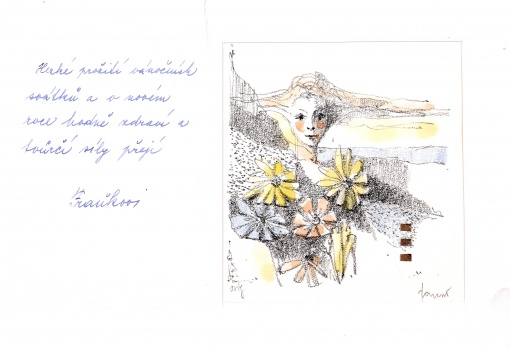 Hezké prožití vánočních
svátků a v novém
roce hodně zdraví a
tvůrčí síly přejí
Fraňkovi